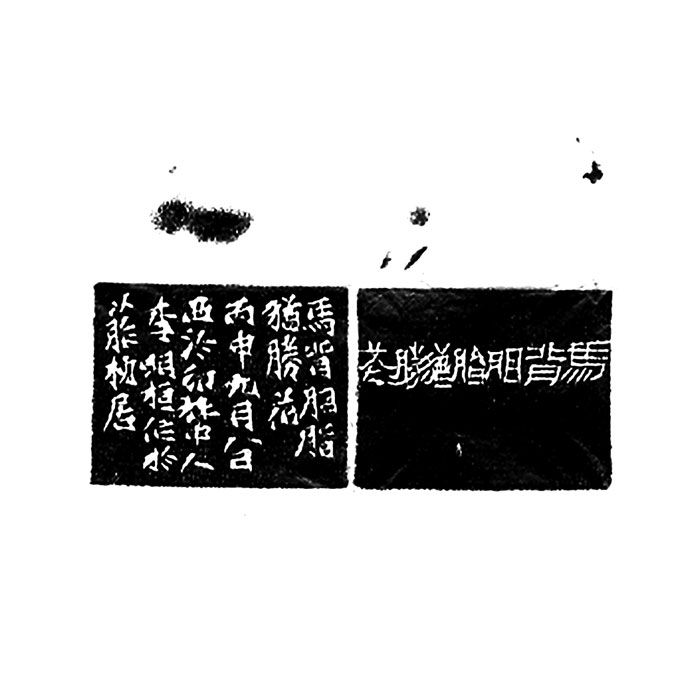 馬背胭脂猶勝花
馬背胭脂
猶勝花
丙申九月八日
西泠印社中人
李明桓作於
居